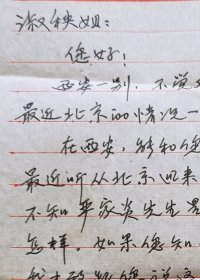 淑秧姐：
您好！
西安一别，不说
最近北京的情况一
在西安，能和您
最近听从北京回来
不知平家炎先生
怎样。如果您知